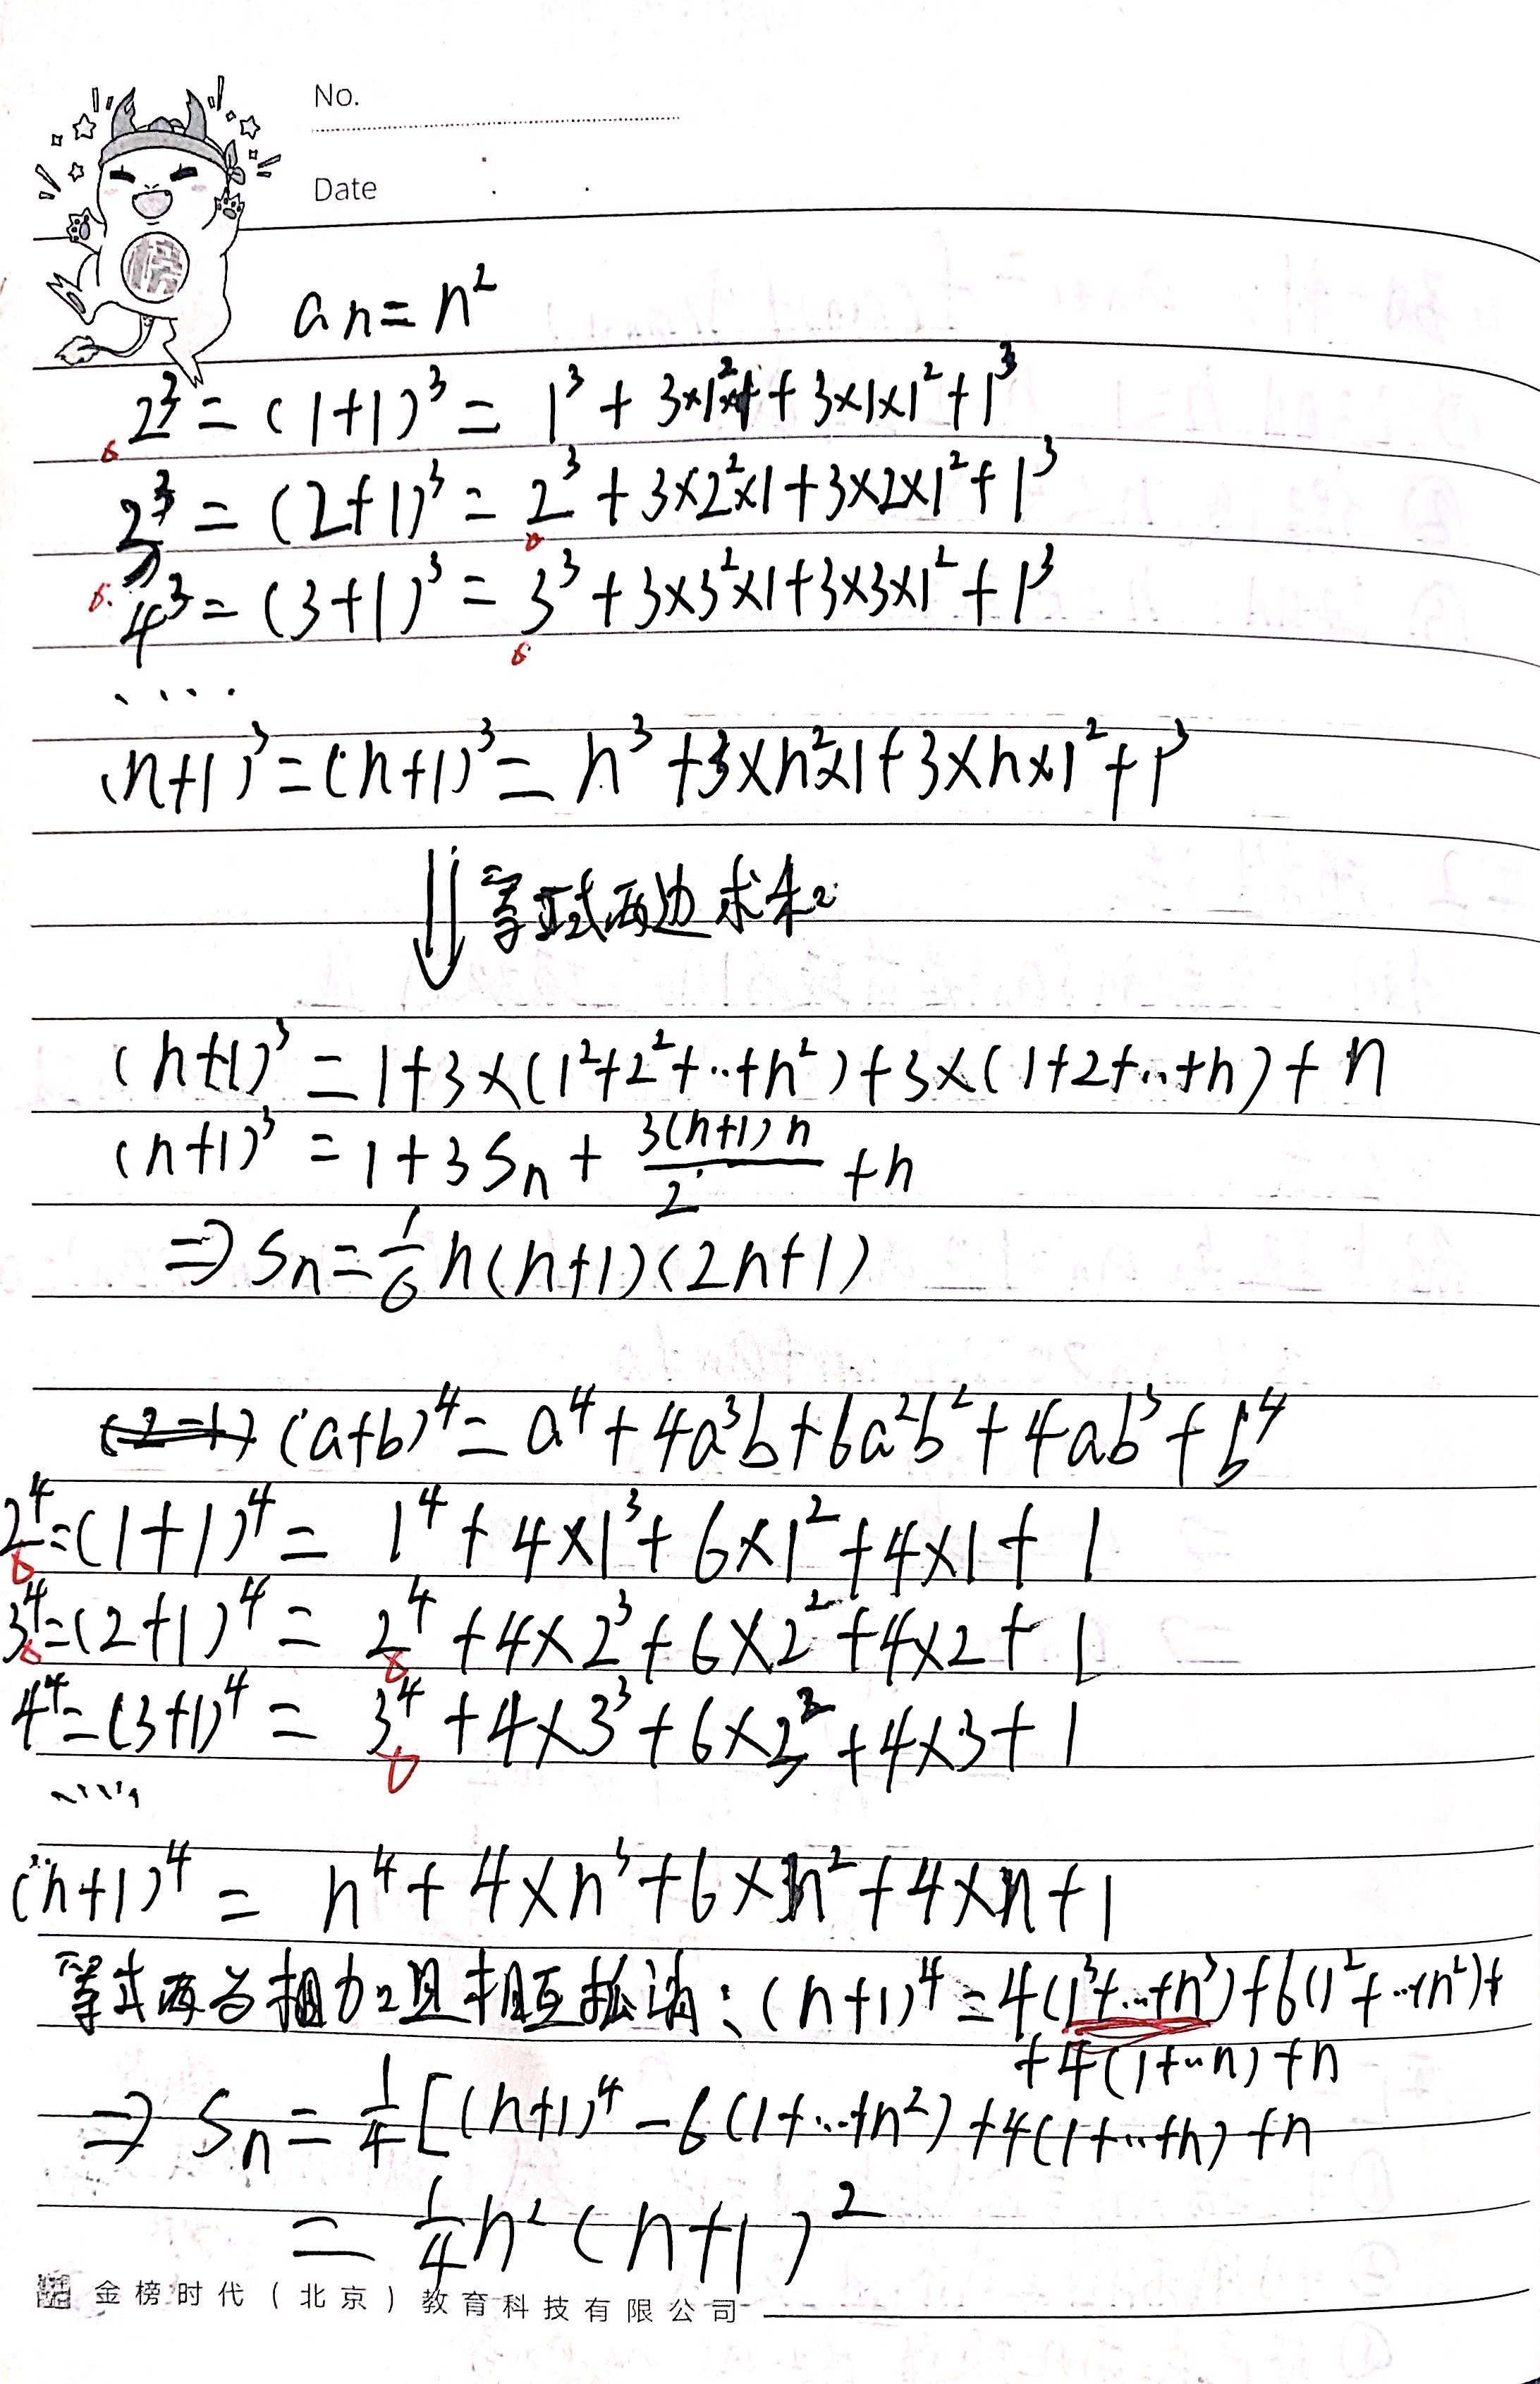 No.
Date
an = n²
2³ = (1+1)³ = 1³ + 3×1²×1 + 3×1×1² + 1³
3³ = (2+1)³ = 2³ + 3×2²×1 + 3×2×1² + 1³
4³ = (3+1)³ = 3³ + 3×3²×1 + 3×3×1² + 1³
....
(n+1)³ = (n+1)³ = n³ + 3×n²×1 + 3×n×1² + 1³
⇓ 等式两边求和:
(n+1)³ = 1 + 3×(1²+2²+...+n²) + 3×(1+2+...+n) + n
(n+1)³ = 1 + 3Sn + 3(n+1)n/2 + n
⇒ Sn = 1/6 n(n+1)(2n+1)
(a+b)⁴ = a⁴ + 4a³b + 6a²b² + 4ab³ + b⁴
2⁴ = (1+1)⁴ = 1⁴ + 4×1³ + 6×1² + 4×1 + 1
3⁴ = (2+1)⁴ = 2⁴ + 4×2³ + 6×2² + 4×2 + 1
4⁴ = (3+1)⁴ = 3⁴ + 4×3³ + 6×3² + 4×3 + 1
.....
(n+1)⁴ = n⁴ + 4×n³ + 6×n² + 4×n + 1
等式两边相加且相互抵消: (n+1)⁴ = 4(1³+...+n³) + 6(1²+...+n²) +
+ 4(1+...n) + n
⇒ Sn = 1/4 [(n+1)⁴ - 6(1+...+n²) + 4(1+...+n) + n
= 1/4 n² (n+1)²
金榜时代（北京）教育科技有限公司